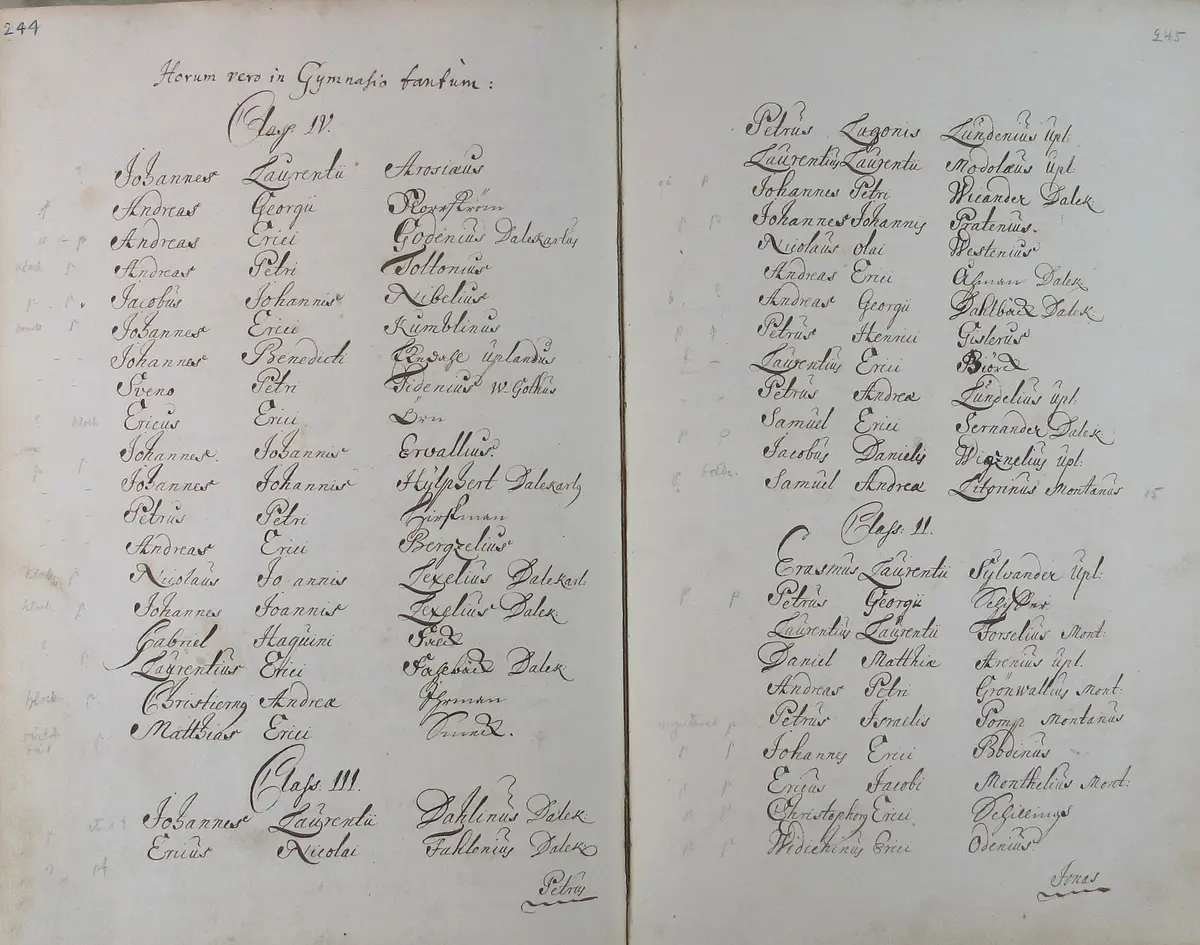 244
Horum vero in Gymnasio tantum:
Class. IV.
Johannes Laurentii Arosiæus
Andreas Georgii Norrström
Andreas Erici Godenius Dalekarlus
Andreas Petri Toltonius
Jacobus Johannis Nibelius
Johannes Erici Kumblinus
Johannes Benedicti Uplandus
Sveno Petri Tidenius W-Gothus
Ericus Erici Örn
Johannes Johannis Ervallius.
Johannes Johannis Hülphert Dalekarl
Petrus Petri Hirschman
Andreas Erici Bergzelius
Nicolaus Joannis Lexelius Dalekarl:
Johannes Joannis Lexelius Dalek:
Gabriel Haquini Freck
Laurentius Erici Dalek:
Christierng Andreæ Ihrman
Matthias Erici Smeck.
Class. III.
Johannes Laurentii Dahlinus Dalek:
Ericus Nicolai Fahlenius Dalek:
Petrus
245
Petrus Lagonis Lundenius Upl:
Laurentius Laurentii Modolæus Upl.
Johannes Petri Wicander Dalek:
Johannes Johannis Pratenius.
Nicolaus Olai Westenius
Andreas Erici Åhman Dalek
Andreas Georgii Dahlbäck Dalek:
Petrus Henrici Gislerus
Laurentius Erici Biörck
Petrus Andreæ Lundelius Upl.
Samuel Erici Fernander Dalek:
Jacobus Danielis Wigznelius Upl:
Samuel Andreæ Litorinus Montanus
15
Class. II.
Erasmus Laurentii Sylvander Upl:
Petrus Georgii
Laurentius Laurentii Forselius Mont:
Daniel Matthiæ Arenius Upl.
Andreas Petri Grönwallius Mont:
Petrus Israelis Pomp Montanus
Johannes Erici Bodinus
Ericus Jacobi Monthelius Mont:
Christophorg Erici Schillings
Widichinus Erici Odenius
Jonas